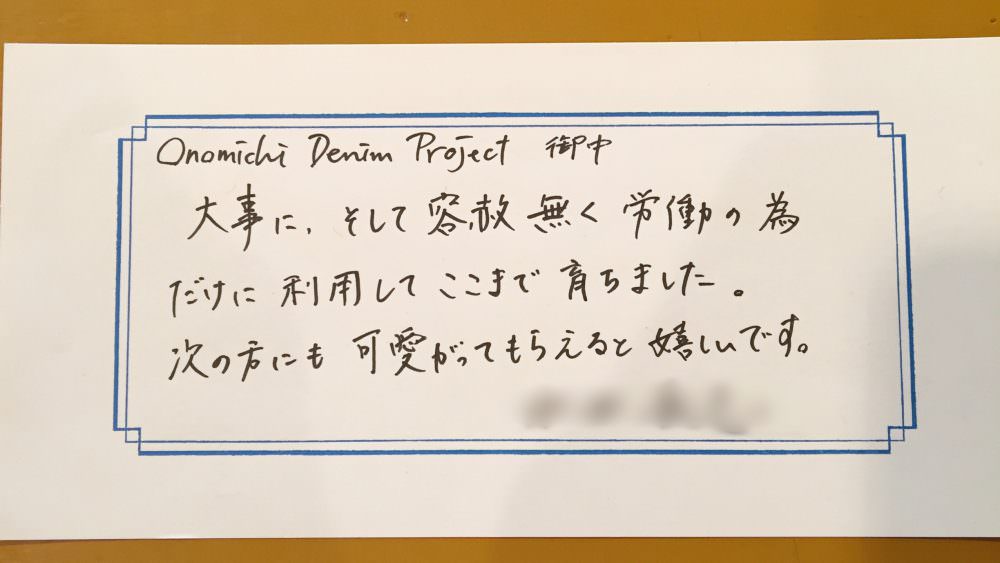 Onomichi Denim Project 御中
大事に、そして容赦無く労働の為
だけに利用してここまで育ちました。
次の方にも可愛がってもらえると嬉しいです。